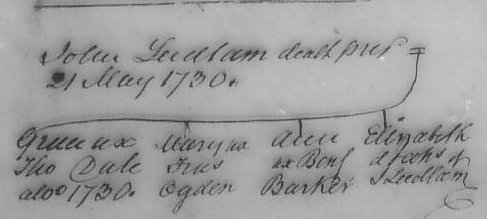 John Ludlam death pres =
21 May 1730.
Grace ux Mary ux Ann Elizabeth
Tho Dale Frus ux Benj d of
aboo 1730. Ogden Barker J Ludlam